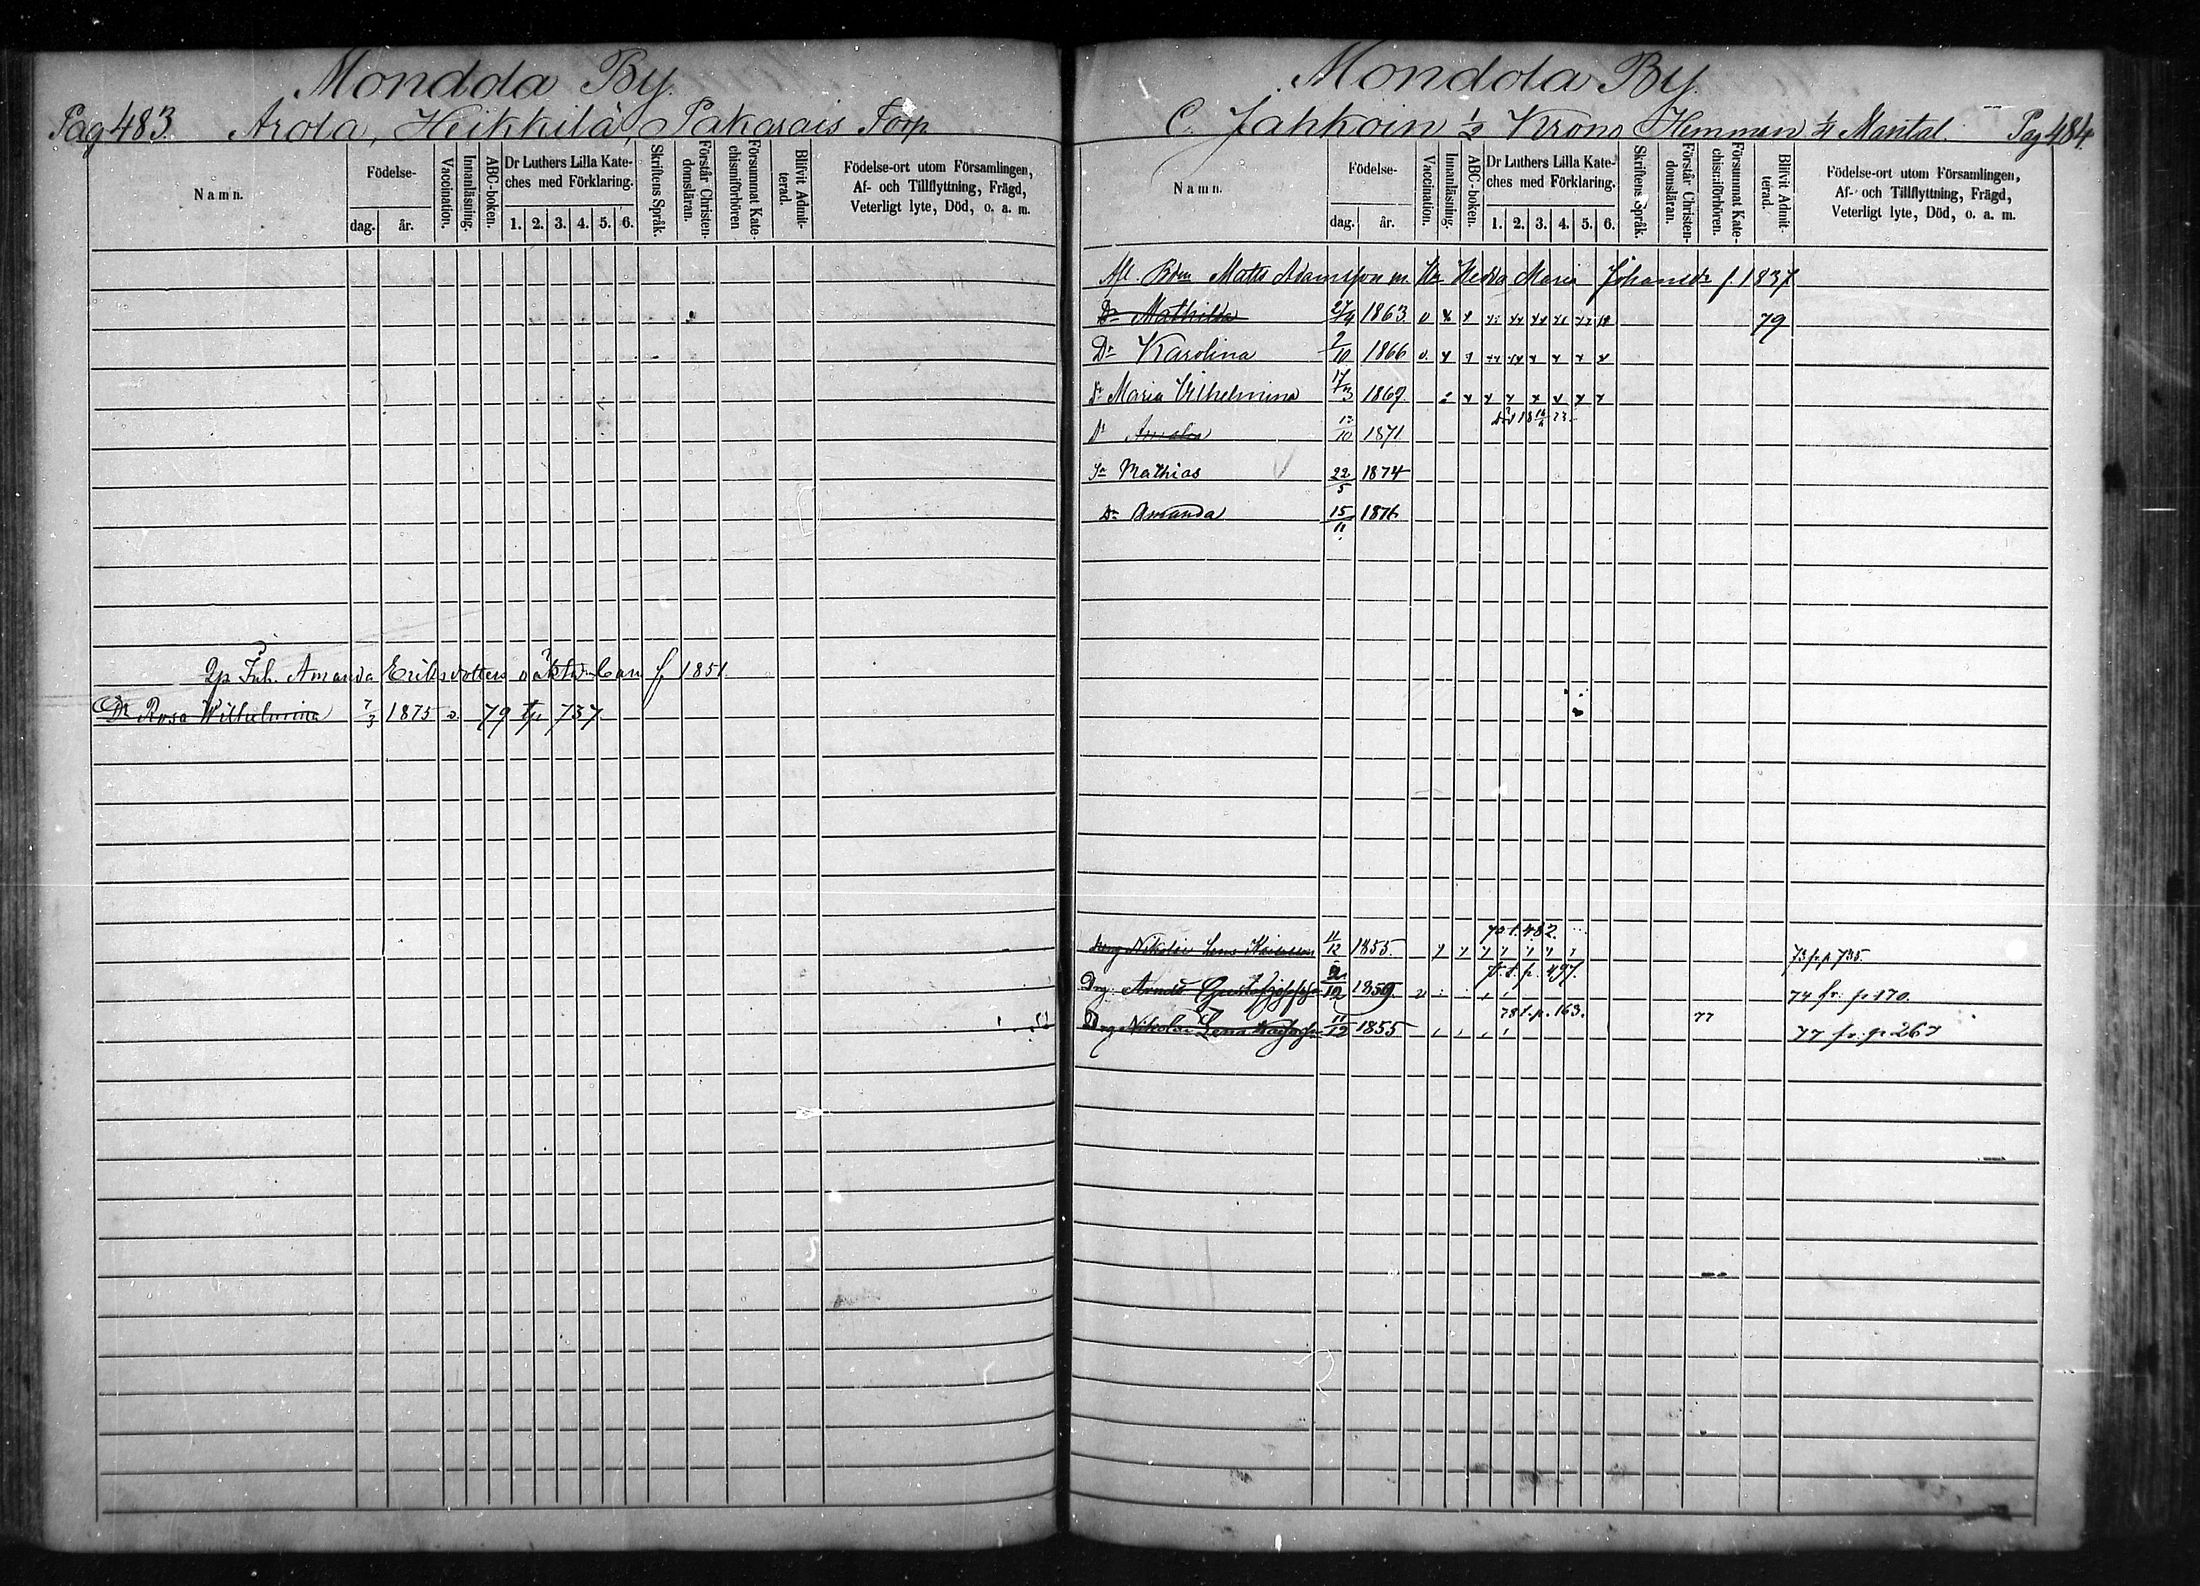 Mondola By.
Pag 483. Arola, Heikkilä, Pakarais Torp
Namn.
Födelse-
dag. år.
Vaccination.
Innanläsning.
ABC-boken.
Dr Luthers Lilla Kate-
ches med Förklaring.
1. 2. 3. 4. 5. 6.
Skriftens Språk.
Förstår Christen-
domsläran.
Försummat Kate-
chismiförhören
Blifvit Admit-
terad.
Födelse-ort utom Församlingen,
Af- och Tillflyttning, Frägd,
Veterligt lyte, Död, o. a. m.
Inh. Amanda Eriksdotters oäkta barn f. 1851.
Dr Rosa Wilhelmina 7/3 1875 v. 79 tp. 737.
Mondola By
C. Jahkoin 1/2 Krono Hemman 1/4 Mantal. Pag 484.
Namn.
Födelse-
dag. år.
Vaccination.
Innanläsning.
ABC-boken.
Dr Luthers Lilla Kate-
ches med Förklaring.
1. 2. 3. 4. 5. 6.
Skriftens Språk.
Förstår Christen-
domsläran.
Försummat Kate-
chismiförhören.
Blifvit Admit-
terad.
Födelse-ort utom Församlingen,
Af- och Tillflyttning, Frägd,
Veterligt lyte, Död, o. a. m.
Afl. Bdn Matts Adamsson m. Hu Hedda Maria Johansdr f. 1837
Dr Mathilda 27/4 1863 v 79
Dr Karolina 2/10 1866 v.
Dr Maria Vilhelmina 17/3 1869
Död 18
Dr 10 1871
Sn Mathias 22/5 1874
Dr Amanda 15/11 1876
t. 482.
Nikolai Lena 11/12 1855. 73 fr. p 735.
t. p. 497.
Drg. Gustafsson 2/12 1859. v 74 fr. p. 170.
78 t. p. 163.
Drg Nikolai Lena 11/12 1855 77 77 fr. p 267